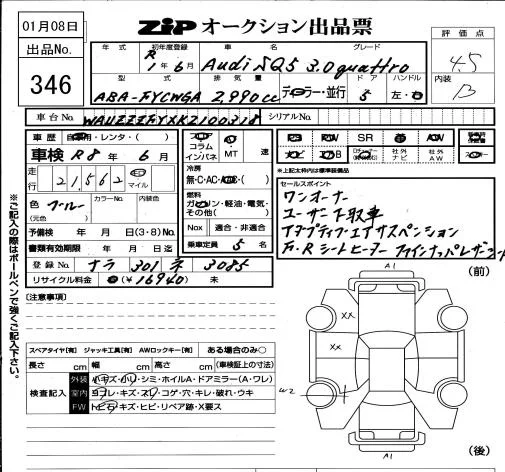 01月08日
出品No.
346
ZiP オークション出品票
評価点
4.5
内装
B
年式 初年度登録 車名 グレード
R1年6月 Audi SQ5 3.0 quattro
型式 排気量 ドア ハンドル
ABA-FYCWGA 2,990cc ディーラー・並行 5 左・右
車台No. WAUZZZFYXK2100318 シリアルNo.
車歴 自家用・レンタ・( )
車検 R8年6月
走行 21,562 マイル
色 ブルー カラーNo. 内装色
(元色)
予備検 年 月 日(3・8)No.
書類有効期限 年 月 日迄
登録No. ナラ 301 ネ 3085
リサイクル料金 (¥16940) 未
コラム
インパネ MT 速
冷房
無・C・AC・ ・( )
燃料
ガソリン・軽油・電気・
その他( )
Nox 適合・非適合
乗車定員 5 名
SR
社外ナビ 社外AW
*上記太枠内は標準装備品
セールスポイント
ワンオーナー
ユーザー下取車
アダプティブエアサスペンション
F・Rシートヒーター ファインナッパレザー
※ご記入の際はボールペンで強くご記入下さい。
[注意事項]
スペアタイヤ[有] ジャッキ工具[有] AWロックキー[有] ある場合のみ○
長さ cm 幅 cm 高さ cm (車検証上の寸法)
検査記入
外装 小キズ・小凹・シミ・ホイルA・ドアミラー(A・ワレ)
室内 ヨゴレ・キズ・スレ・コゲ・穴・キレ・破れ・ウキ
FW トビ石・キズ・ヒビ・リペア跡・X要ス
A1
(前)
XX
XX
W2
A1
(後)